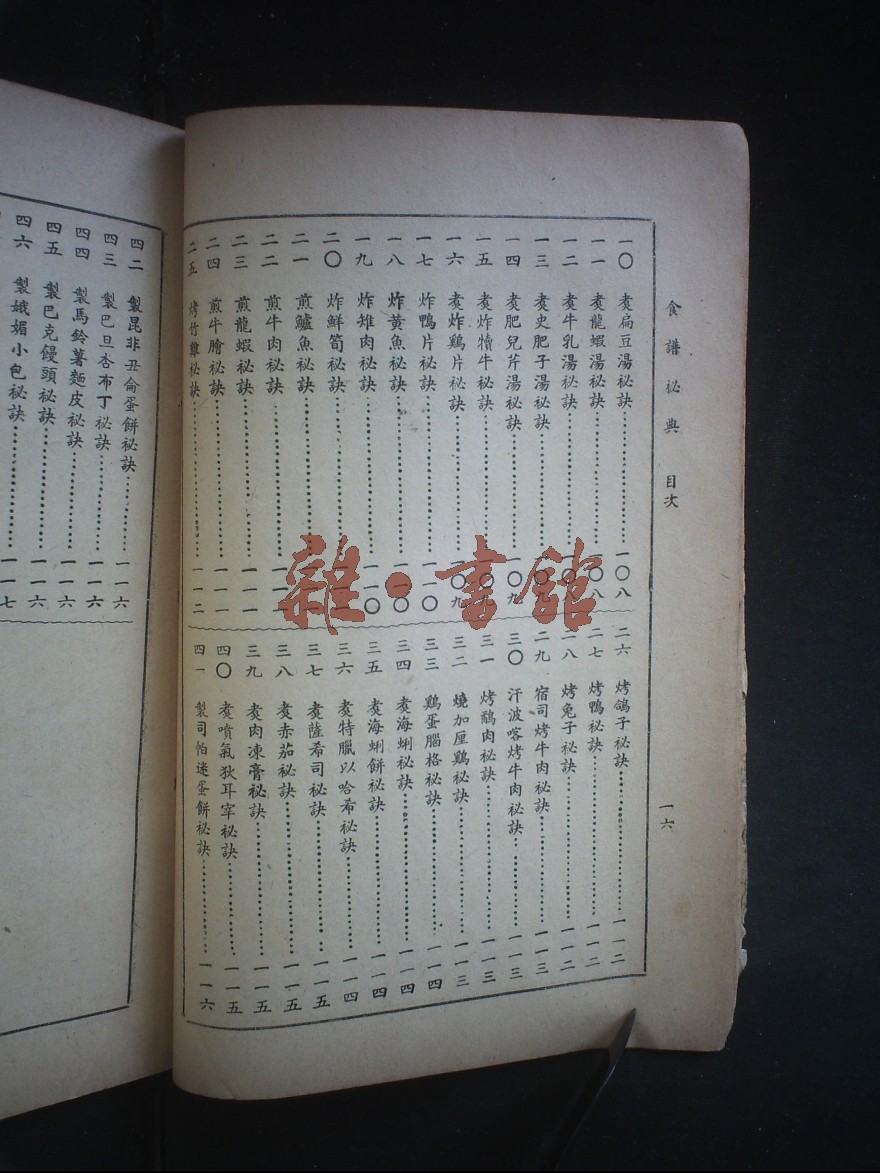 食譜秘典 目次 一六
一〇 煑扁豆湯秘訣……一〇八
一一 煑龍蝦湯秘訣……一〇八
一二 煑牛乳湯秘訣……一〇
一三 煑史肥子湯秘訣……一〇九
一四 煑肥兒芹湯秘訣……一〇九
一五 煑炸犢牛秘訣……一〇九
一六 煑炸鷄片秘訣……一〇九
一七 炸鴨片秘訣……一一〇
一八 炸黃魚秘訣……一一〇
一九 炸雉肉秘訣……一一〇
二〇 炸鮮筍秘訣……
二一 煎鱸魚秘訣……
二二 煎牛肉秘訣……一一一
二三 煎龍蝦秘訣……一一一
二四 煎牛膾秘訣……一一一
二五 烤竹雞秘訣……一一二
二六 烤鴿子秘訣……一一二
二七 烤鴨秘訣……一一二
二八 烤兔子秘訣……一一二
二九 宿司烤牛肉秘訣……一一三
三〇 汗波喀烤牛肉秘訣……一一三
三一 烤鷸肉秘訣……一一三
三二 燒加厘鷄秘訣……一一三
三三 鷄蛋腦格秘訣……一一四
三四 煑海蜊秘訣……一一四
三五 煑海蜊餅秘訣……一一四
三六 煑特臘以哈希秘訣……一一四
三七 煑薩希司秘訣……一一五
三八 煑赤茄秘訣……一一五
三九 煑肉凍膏秘訣……一一五
四〇 煑噴氣狄耳宰秘訣……一一五
四一 製司帕迷蛋餅秘訣……一一六
四二 製昆非丑侖蛋餅秘訣……一一六
四三 製巴旦杏布丁秘訣……一一六
四四 製馬鈴薯麵皮秘訣……一一六
四五 製巴克饅頭秘訣……一一六
四六 製娥媚小包秘訣……一一七
雜·書館